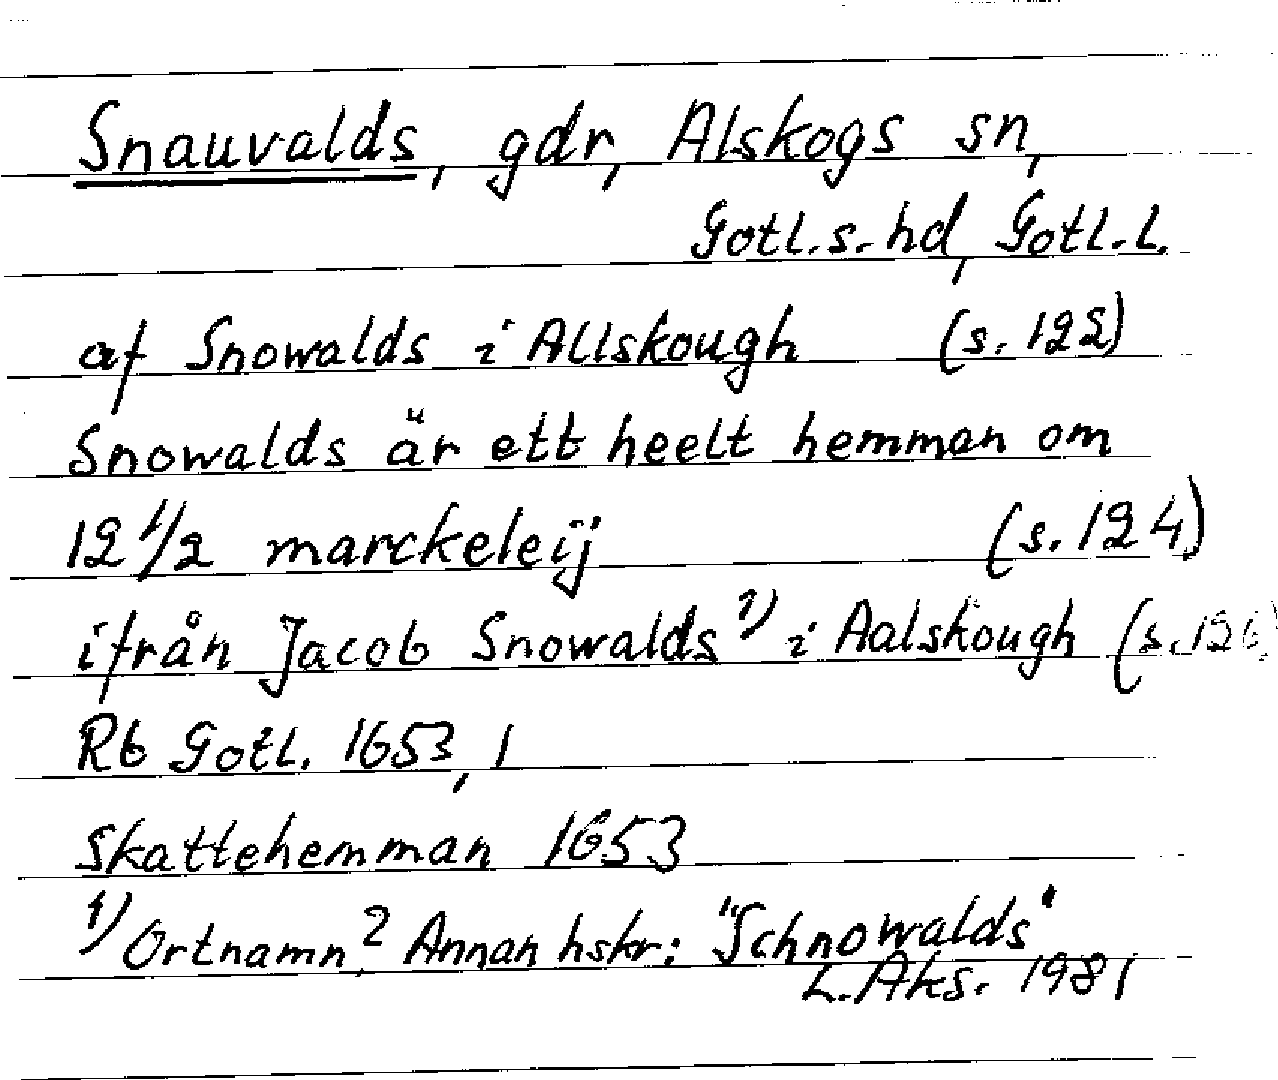 Snauvalds, gdr, Alskogs sn,
Gotl.s.hd, Gotl.l.
af Snowalds i Allskough (s.122)
Snowalds är ett heelt hemman om
12 1/2 marckeleij (s.124)
ifrån Jacob Snowalds 1) i Aalskough (s.126)
Rb Gotl. 1653, 1
Skattehemman 1653
1) Ortnamn? Annan hskr: "Schnowalds"
L.Aks. 1981